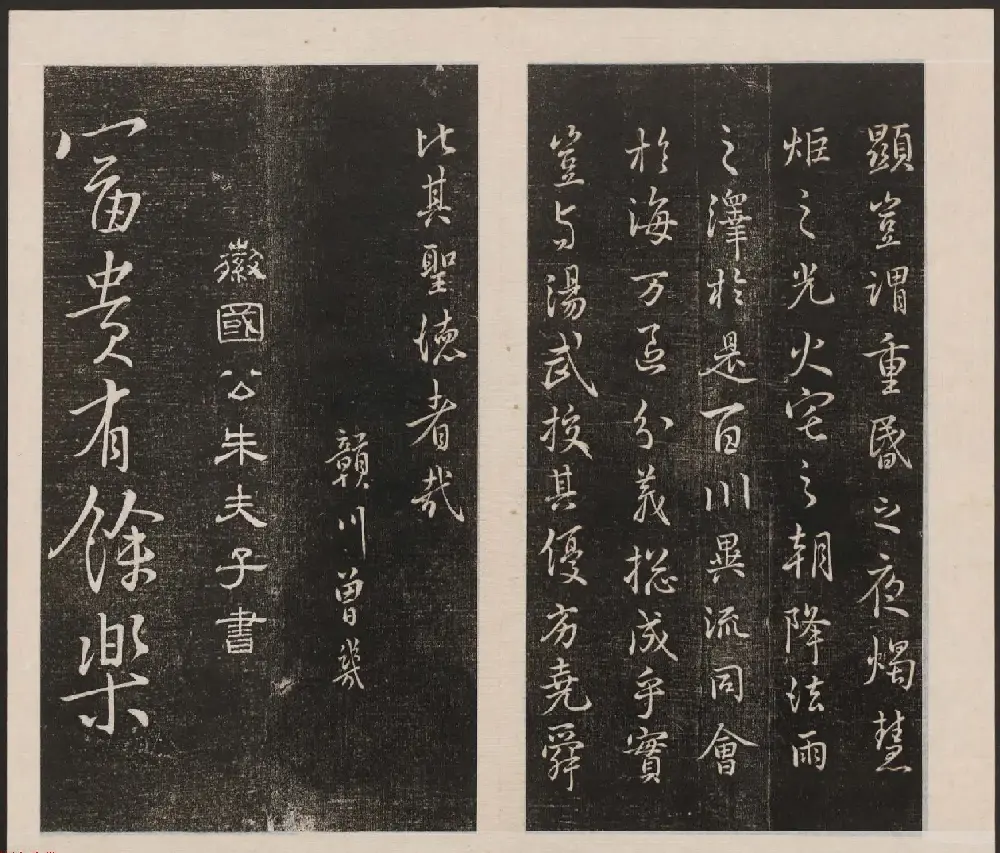 顯豈謂重昏之夜燭慧
炬之光火宅之朝降法雨
之澤於是百川異流同會
於海万區分義総成乎實
豈与湯武挍其優劣堯舜
比其聖徳者哉
贛川曽幾
徽國公朱夫子書
富貴有餘樂